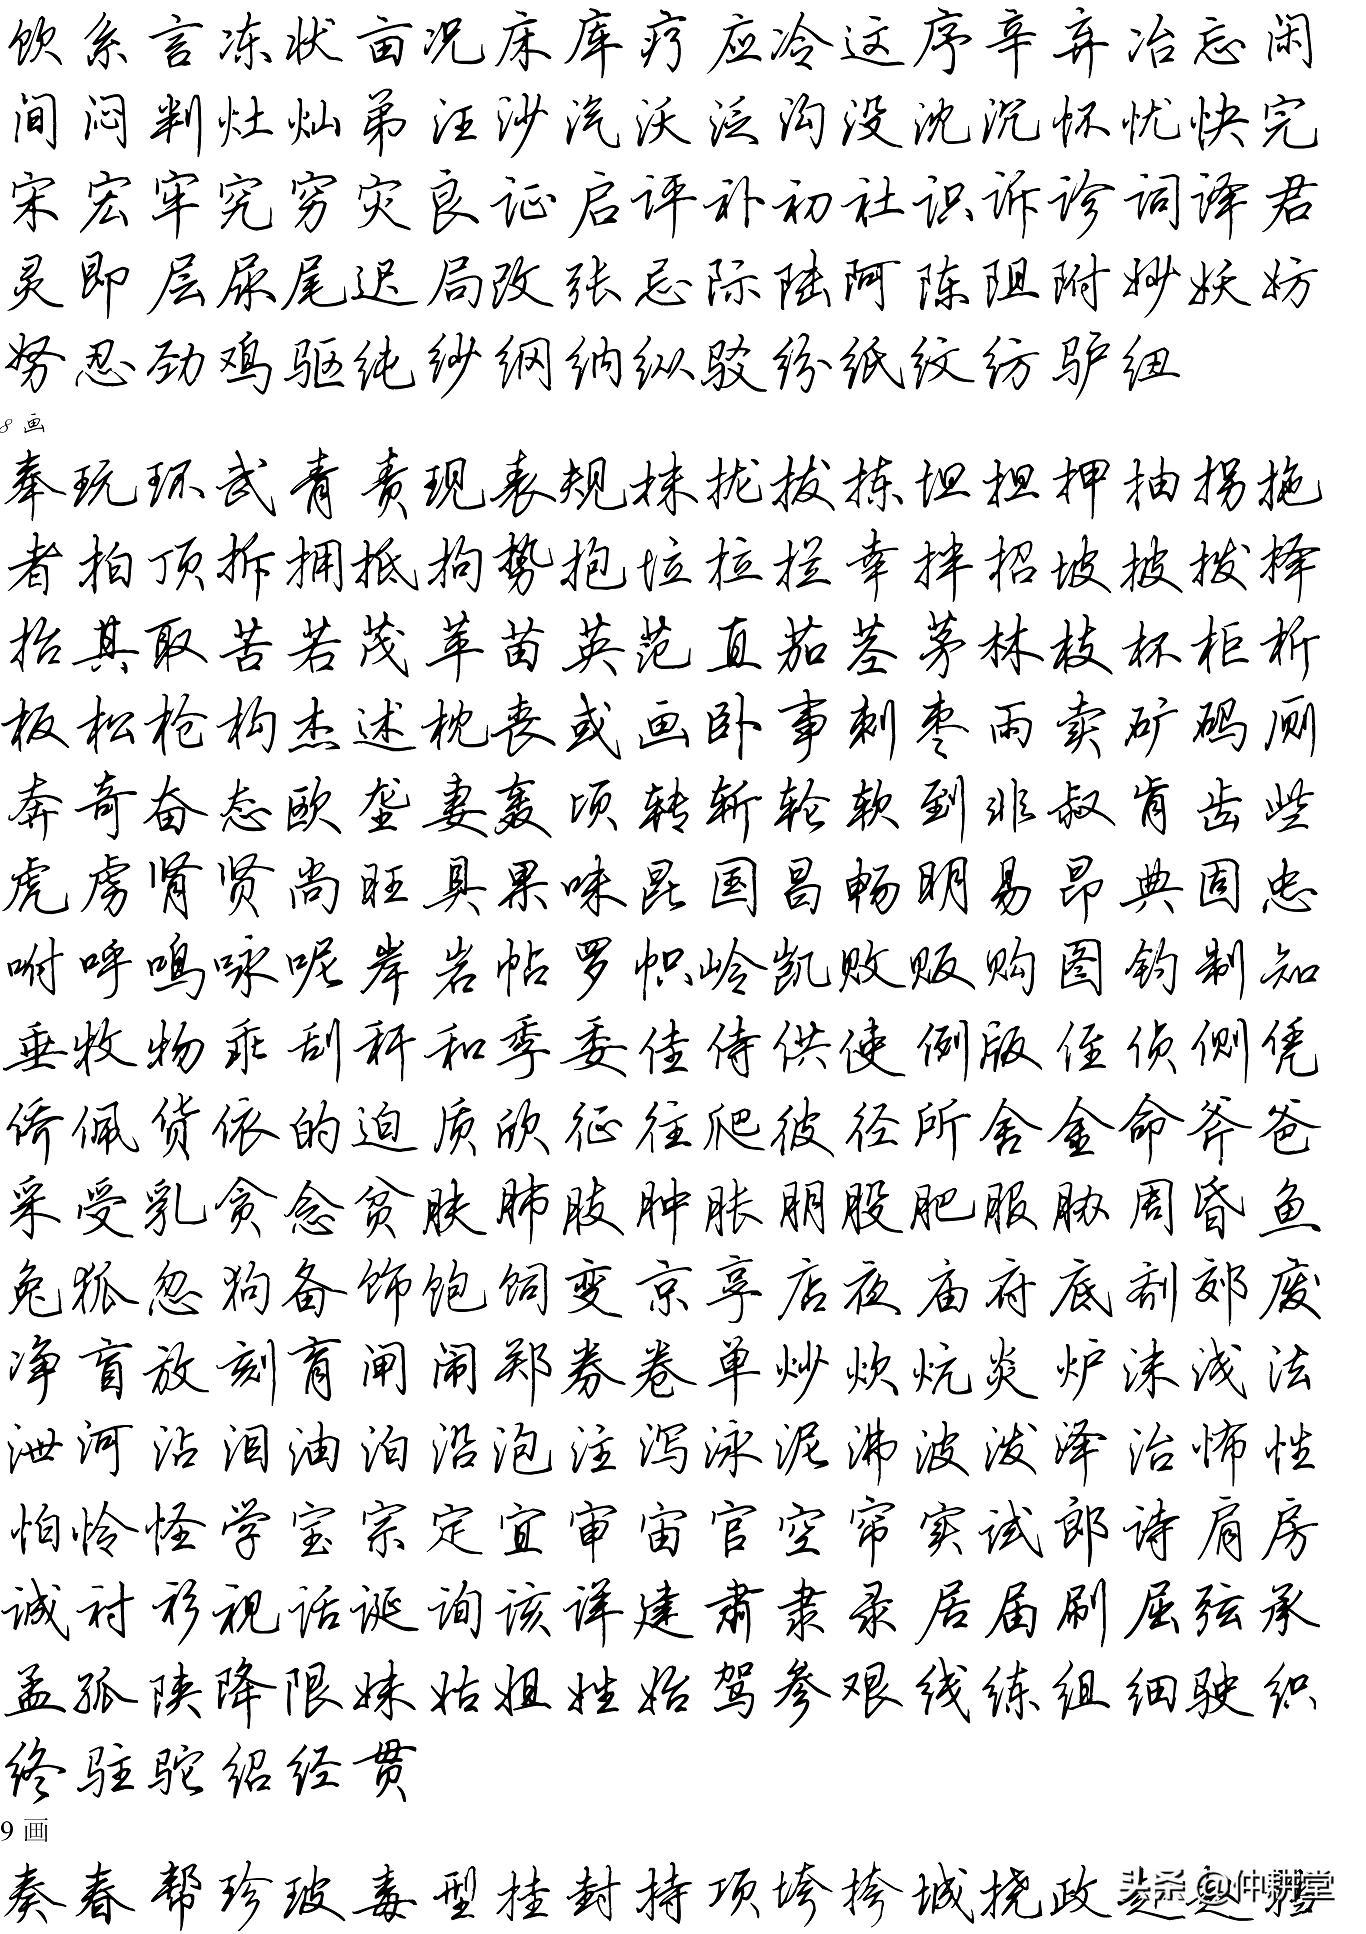 饮系言冻状亩况床库疗应冷这序辛弃冶忘闲
间闷判灶灿弟汪沙汽沃泛沟没沈沉怀忧快完
宋宏牢究穷灾良证启评补初社识诉诊词译君
灵即层尿尾迟局改张忌际陆阿陈阻附妙妖妨
努忍劲鸡驱纯纱纲纳纵驳纷纸纹纺驴纽
8 画
奉玩环武青责现表规抹拢拔拣坦担押抽拐拖
者拍顶拆拥抵拘势抱垃拉拦幸拌招坡披拨择
抬其取苦若茂苹苗英范直茄茎茅林枝杯柜析
板松枪构杰述枕丧或画卧事刺枣雨卖矿码厕
奔奇奋态欧垄妻轰顷转斩轮软到非叔肯齿些
虎虏肾贤尚旺具果味昆国昌畅明易昂典固忠
咐呼鸣咏呢岸岩帖罗帜岭凯败贩购图钓制知
垂牧物乖刮秆和季委佳侍供使例版侄侦侧凭
侨佩货依的迫质欣征往爬彼径所舍金命斧爸
采受乳贪念贫肤肺肢肿胀朋股肥服胁周昏鱼
兔狐忽狗备饰饱饲变京享店夜庙府底剂郊废
净盲放刻育闸闹郑券卷单炒炊炕炎炉沫浅法
泄河沾泪油泊沿泡注泻泳泥沸波泼泽治怖性
怕怜怪学宝宗定宜审宙官空帘实试郎诗肩房
诚衬衫视话诞询该详建肃隶录居届刷屈弦承
孟孤陕降限妹姑姐姓始驾参艰线练组细驶织
终驻驼绍经贯
9 画
奏春帮珍玻毒型挂封持项垮挎城挠政
头条 @仲耕堂